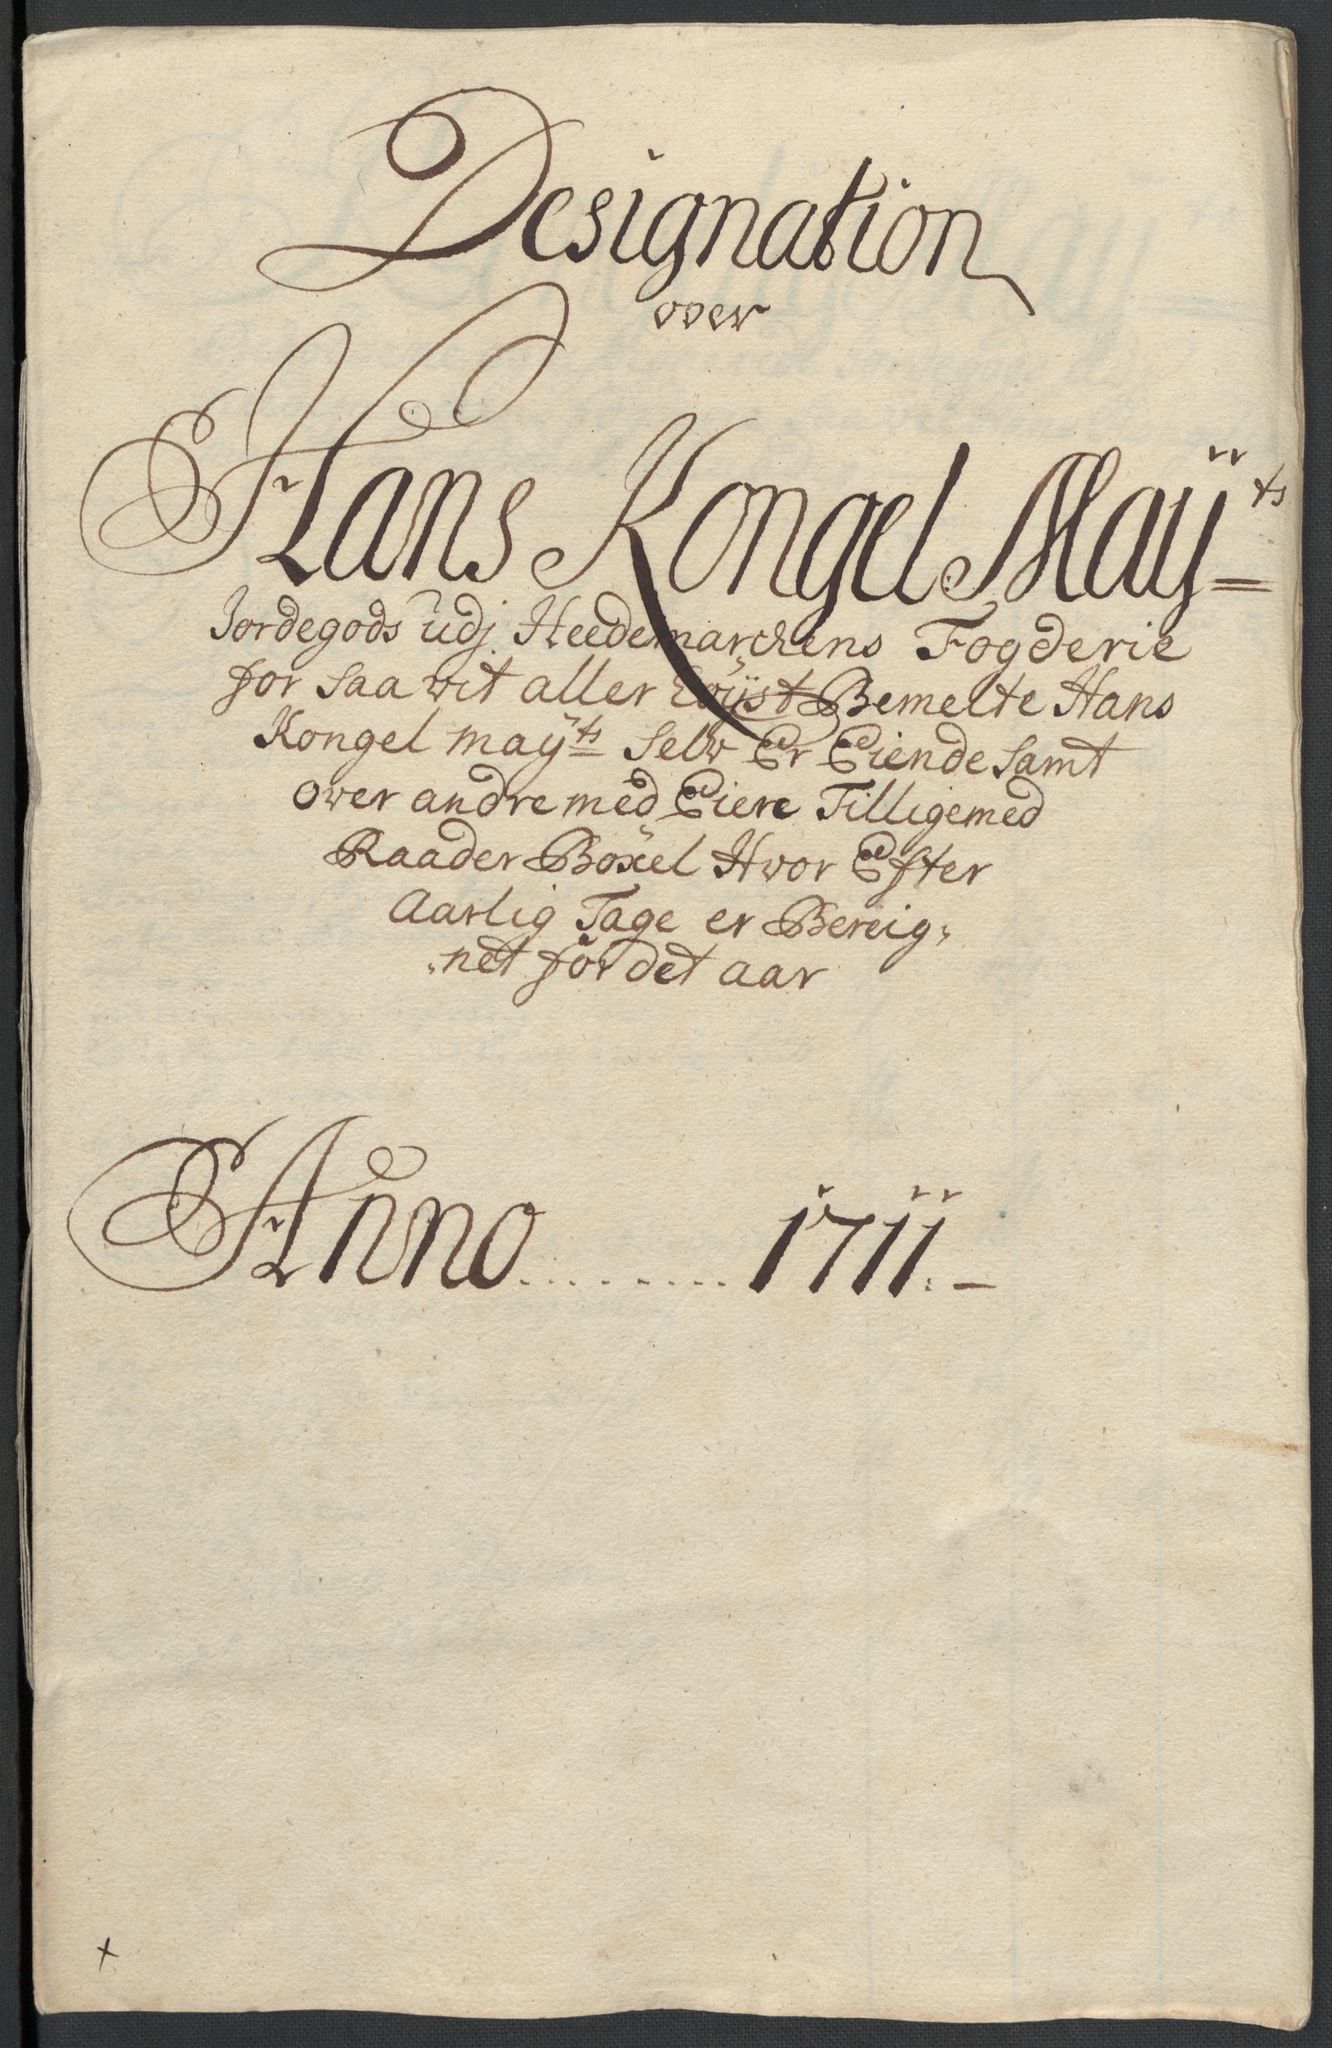 Designation
over
Hans Kongel Maÿts
Jordegods udj Heedemarckens Fogderie
for saa vit aller Bemelte Hans
Kongel maÿts Selv Er Eiende samt
over andre med Eiere Tilligemed
Raader Böxel Hvor Efter
Aarlig Tage er Bereig,
,net för det aar
Anno ......... 1711. –